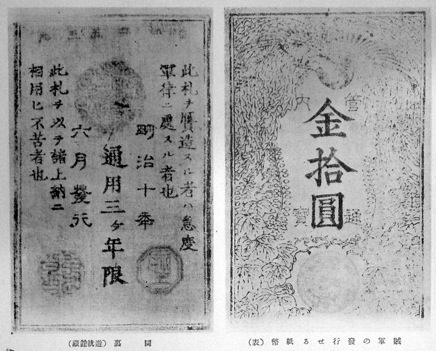 管内通寶
金拾圓
此札ヲ贋造スル者ハ急度
軍律ニ處スル者也
明治十年
六月發行
通用三ケ年限
此札ヲ以テ諸上納ニ
相用ヒ不苦者也
(表)幣紙るせ行發の軍賊
同 裏